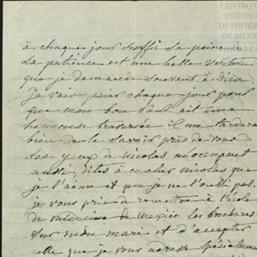 à chaque jour suffit sa peine
La patience est une belle vertu
que je demande souvent à dieu
Je vais prier chaque jour pour
que mon bon fait une
heureuse traversée il me tarde
bien de le savoir près de vous
les yeux de Nicolas m'occupent
aussi, dites à ce cher Nicolas que
je l'aime et que je ne l'oublie pas,
je vous prie de remettre à l'école
de médecine de Mexico les brochures
sur mon mari et d'accepter
celle que je vous adresse spécialement
CENTRO
ESTUDIO
DE HISTOR
DE MEXIC